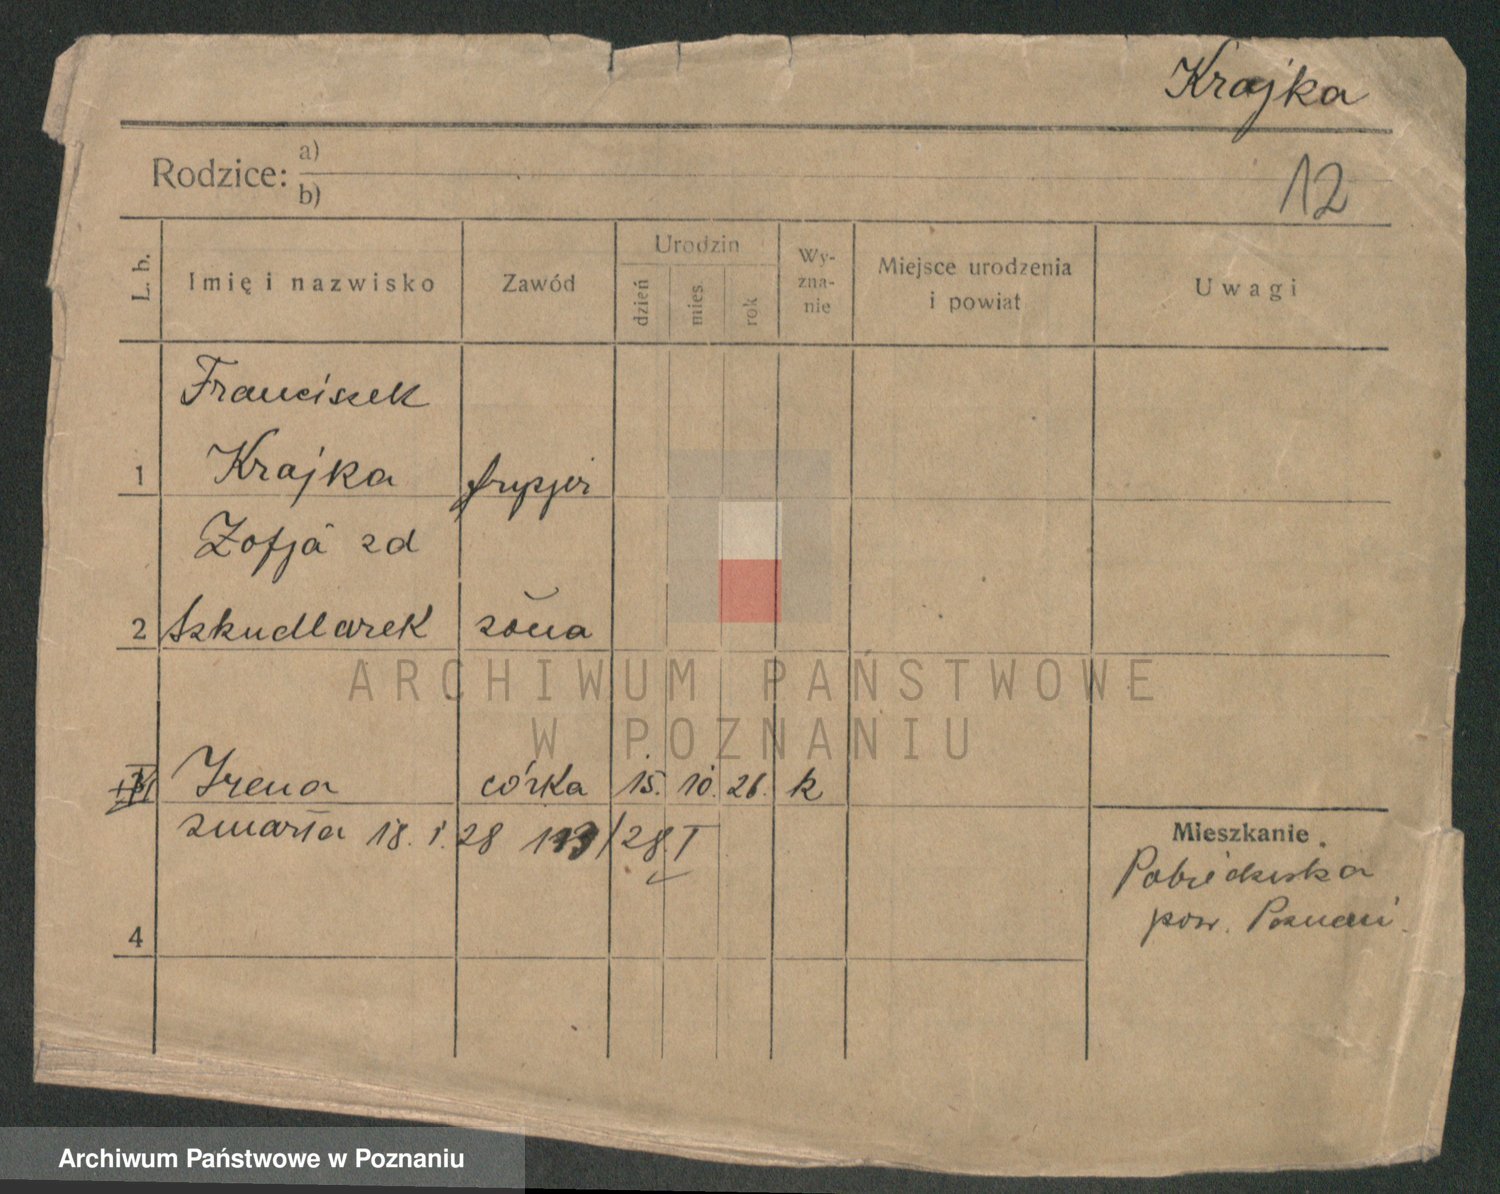 Krajka
12
Rodzice:
a)
b)
L. b.
Imię i nazwisko
Zawód
Urodzin
dzień
mies.
rok
Wy-
zna-
nie
Miejsce urodzenia
i powiat
Uwagi
Franciszek
1 Krajka fryzjer
Zofja zd
2 Szkudlarek żona
Irena córka 15. 10. 26. k
zmarła 18. 1. 28 /28. I
4
Mieszkanie
Pobiedziska
pow. Poznań
ARCHIWUM PAŃSTWOWE
W POZNANIU
Archiwum Państwowe w Poznaniu